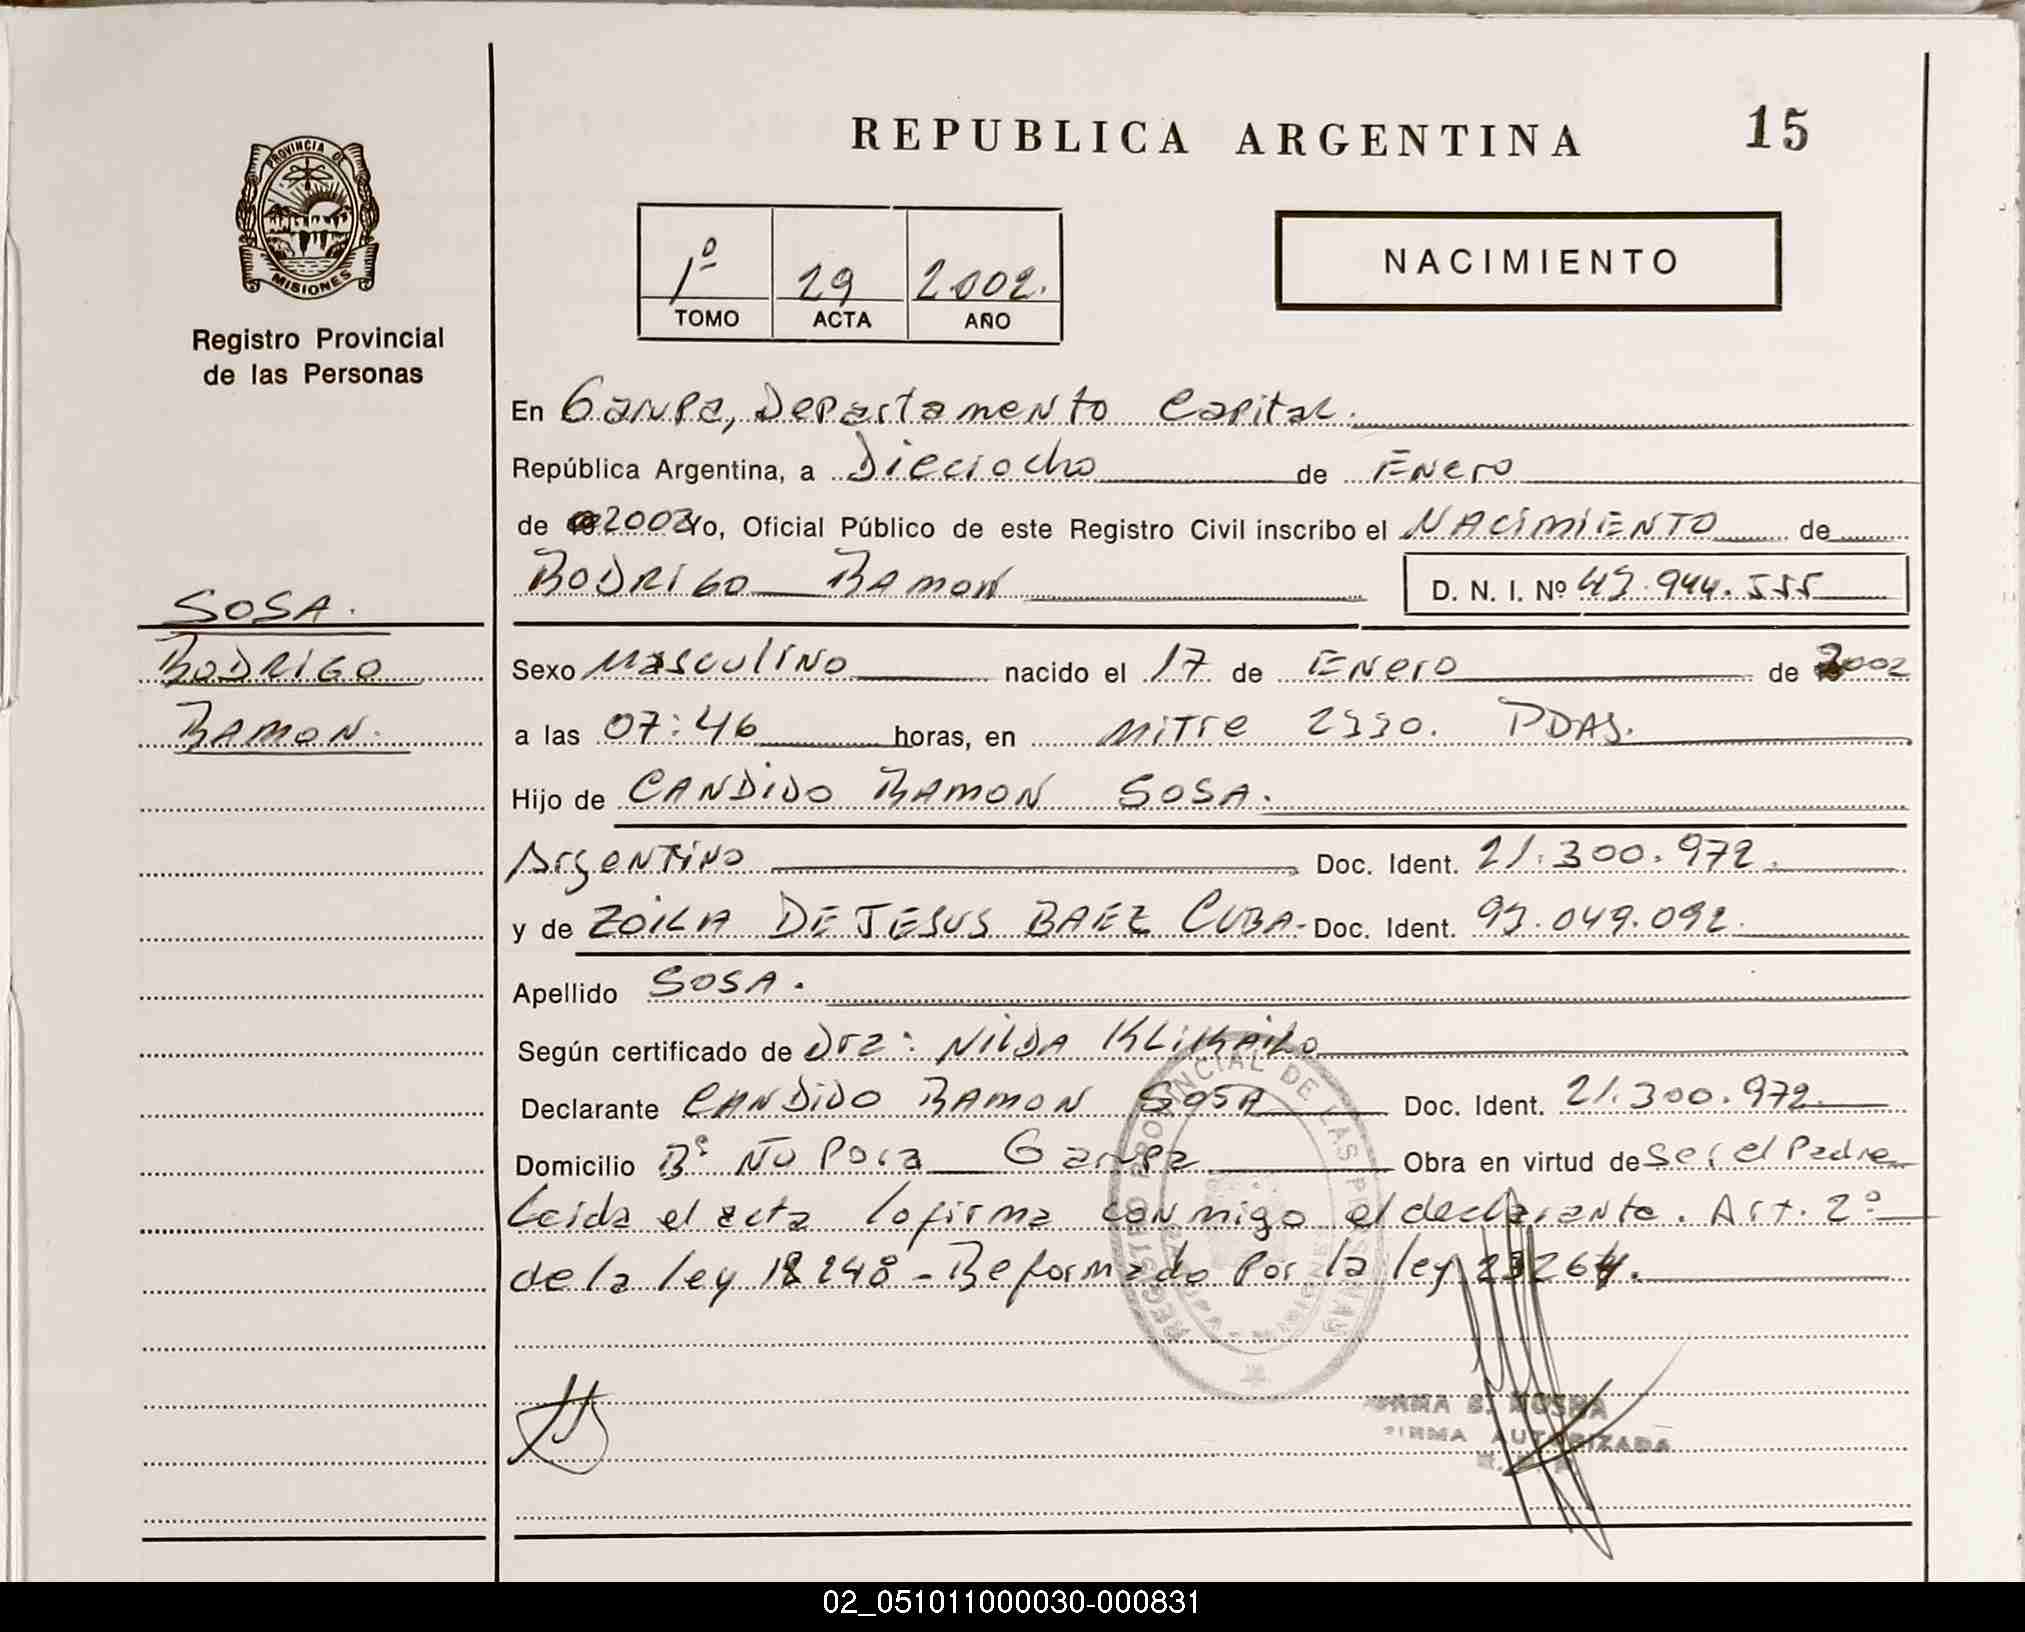 REPUBLICA ARGENTINA 15
PROVINCIA DE
MISIONES
Registro Provincial
de las Personas
1º 29 2002.
TOMO ACTA AÑO
NACIMIENTO
En Garupa, Departamento Capital.
República Argentina, a Dieciocho de Enero
de 2002 Yo, Oficial Público de este Registro Civil inscribo el NACIMIENTO de
RODRIGO RAMON D. N. I. Nº 43.944.555
SOSA.
RODRIGO
RAMON.
Sexo Masculino nacido el 17 de Enero de 2002
a las 07:46 horas, en Mitre 2330. PDAS.
Hijo de CANDIDO RAMON SOSA.
Argentino Doc. Ident. 21.300.972.
y de ZOILA DE JESUS BAEZ CUBA- Doc. Ident. 93.049.092.
Apellido SOSA.
Según certificado de Dra: NILDA
Declarante CANDIDO RAMON SOSA Doc. Ident. 21.300.972.
Domicilio Bº Ñu Pora Garupa Obra en virtud de Ser el Padre
Leida el acta lo firma conmigo el declarante. Art. 2º
de la ley 18248 - Reformado Por la ley 23264.
REGISTRO PROVINCIAL DE LAS PERSONAS
FIRMA AUTORIZADA
02_051011000030-000831